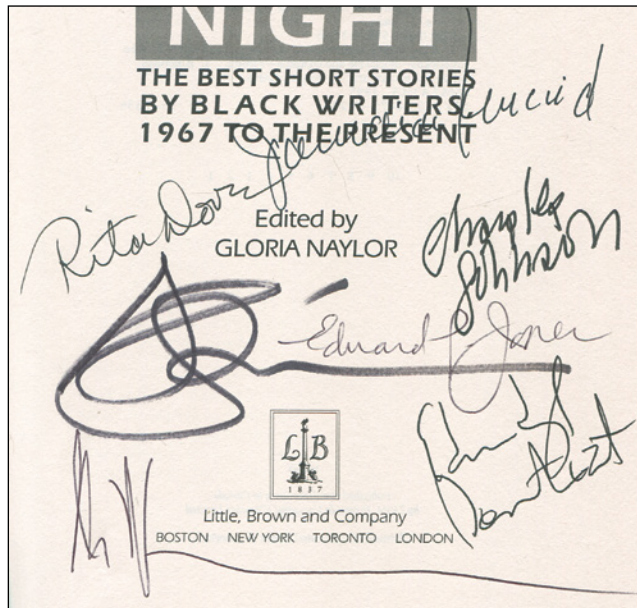 NIGHT
THE BEST SHORT STORIES
BY BLACK WRITERS
1967 TO THE PRESENT
Jamaica Kincaid
Rita Dove
Edited by
GLORIA NAYLOR
Charles
Johnson
Edward P. Jones
L B
1837
Little, Brown and Company
BOSTON NEW YORK TORONTO LONDON